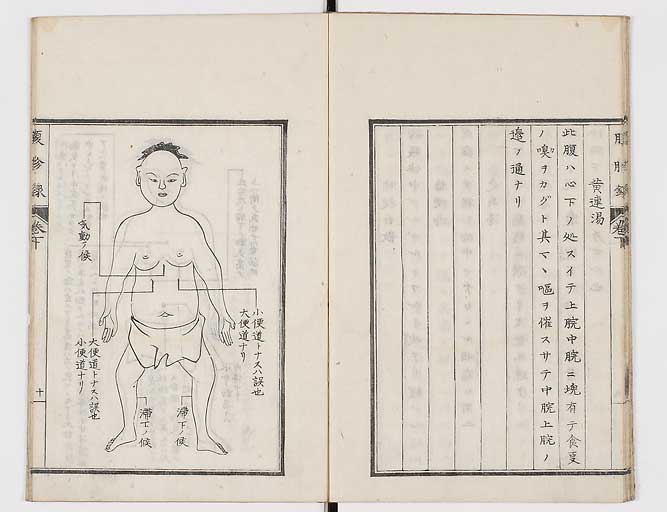 黄連湯
此腹ハ心下ノ処スイテ上脘中脘ニ塊有テ食
ノ嗅ヲカグト其マヽ嘔ヲ催スサテ中脘上脘ノ
邉ノ通ナリ
腹診録
巻下
小便道トナスハ誤也
大便道ナリ
気動ノ候
大便道トナスハ誤也
小便道ナリ
滞下ノ候
滞下ノ候
十